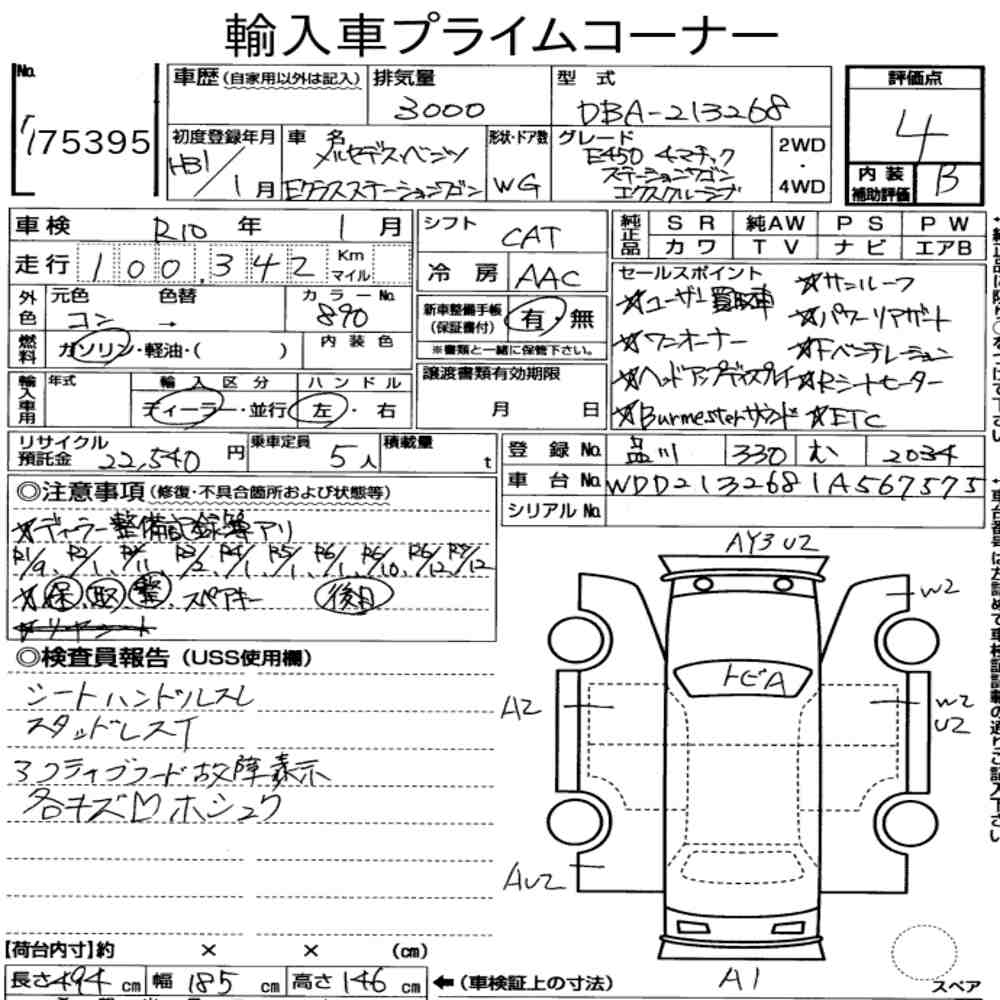 輸入車プライムコーナー
No.
75395
車歴(自家用以外は記入)
排気量
3000
型 式
DBA-213268
評価点
4
初度登録年月
H31/1月
車 名
メルセデスベンツ
Eクラスステーションワゴン
形状・ドア数
WG
グレード
E450 4マチック
ステーションワゴン
エクスクルーシブ
2WD
・
4WD
内 装
補助評価
B
車検 R10 年 1 月
走行 100,342 Km マイル
シフト
CAT
冷 房 AAC
純正品
SR 純AW PS PW
カワ TV ナビ エアB
外色
元色
コン →
色替
カラーNo.
890
内 装 色
燃料
ガソリン・軽油・( )
新車整備手帳
(保証書付)
有・無
※書類と一緒に保管下さい。
セールスポイント
☆ユーザー買取車 ☆サンルーフ
☆ワンオーナー ☆パワーリアゲート
☆ヘッドアップディスプレイ ☆Fベンチレーション
☆Rシートヒーター
☆Burmesterサウンド ☆ETC
輸入車用
年式
輸入区分
ディーラー・並行
ハンドル
左・右
譲渡書類有効期限
月 日
リサイクル
預託金 22,540 円
乗車定員 5人
積載量 t
登 録 No. 品川 330 む 2034
車 台 No. WDD2132681A567575
シリアル No.
◎注意事項(修復・不具合箇所および状態等)
☆ディーラー整備記録簿アリ
R1/9、R2/1、R2/11、R3/2、R4/1、R5/1、R6/1、R6/10、R6/12、R7/12
☆保 取 整、スペアキー 後日
◎検査員報告(USS使用欄)
シートハンドルスレ
スタッドレスT
アクティブフード故障表示
各キズ凹ホシュウ
AY3 U2
W2
トビA
A2
W2
U2
AU2
A1
スペア
【荷台内寸】約 × × (cm)
長さ494cm 幅185cm 高さ146cm
←(車検証上の寸法)